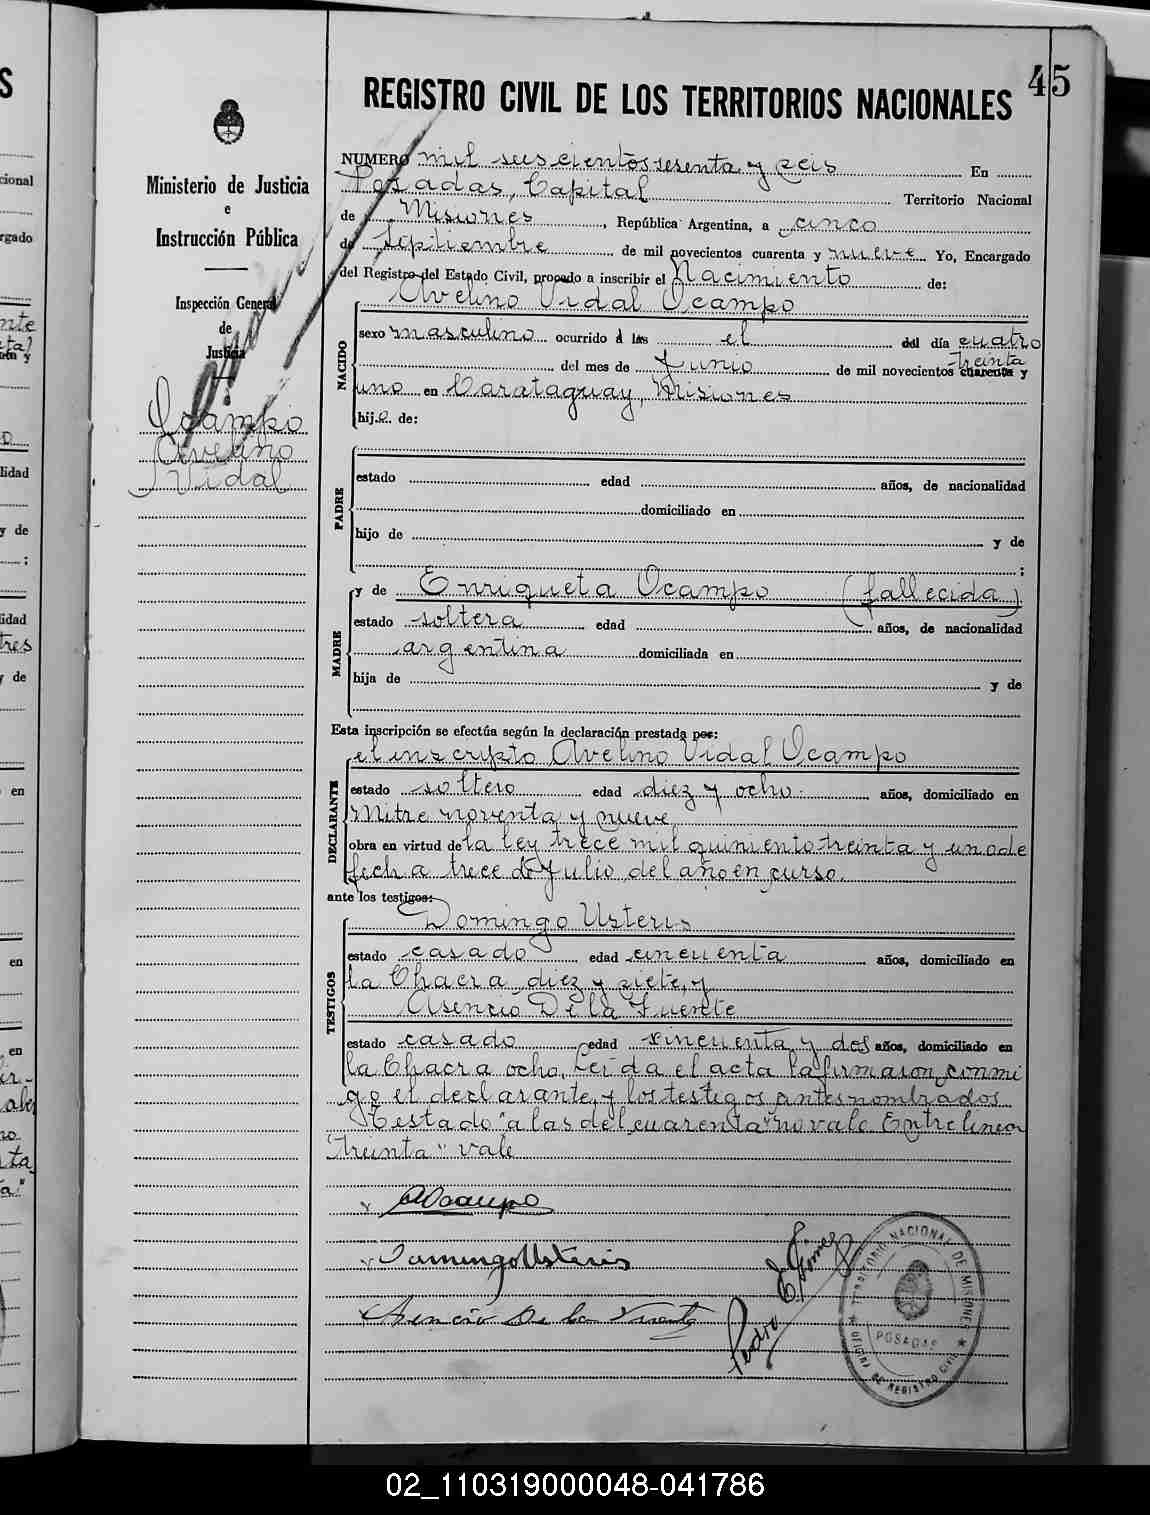 45
REGISTRO CIVIL DE LOS TERRITORIOS NACIONALES
Ministerio de Justicia
e
Instrucción Pública
Inspección General
de
Justicia
Ocampo
Avelino
Vidal
NUMERO mil seiscientos sesenta y seis En
Posadas, Capital Territorio Nacional
de Misiones, República Argentina, a cinco
de Septiembre de mil novecientos cuarenta y nueve Yo, Encargado
del Registro del Estado Civil, procedo a inscribir el Nacimiento de:
NACIDO
Avelino Vidal Ocampo
sexo masculino ocurrido á las el del día cuatro
treinta
del mes de Junio de mil novecientos cuarenta y
uno en Carataguay, Misiones
hijo de:
PADRE
estado edad años, de nacionalidad
domiciliado en
hijo de y de
;
MADRE
y de Enriqueta Ocampo (fallecida)
estado soltera edad años, de nacionalidad
argentina domiciliada en
hija de y de
Esta inscripción se efectúa según la declaración prestada por:
DECLARANTE
el inscrypto Avelino Vidal Ocampo
estado soltero edad diez y ocho años, domiciliado en
Mitre noventa y nueve
obra en virtud de la ley trece mil quiniento treinta y uno de
fecha trece de Julio del año en curso.
ante los testigos:
TESTIGOS
Domingo Usteris
estado casado edad cincuenta años, domiciliado en
la Chacra diez y siete, y
Asencio De la Fuente
estado casado edad cincuenta y dos años, domiciliado en
la Chacra ocho. Leida el acta la firmaron conmi
go el declarante y los testigos antes nombrados
Testado "a las del cuarenta" no vale Entre linea
"treinta" vale
AOcampo
Domingo Usteris
Asencio De la Fuente
Pedro E. Gómez
TERRITORIO NACIONAL DE MISIONES
POSADAS
OFICINA DE REGISTRO CIVIL
02_110319000048-041786